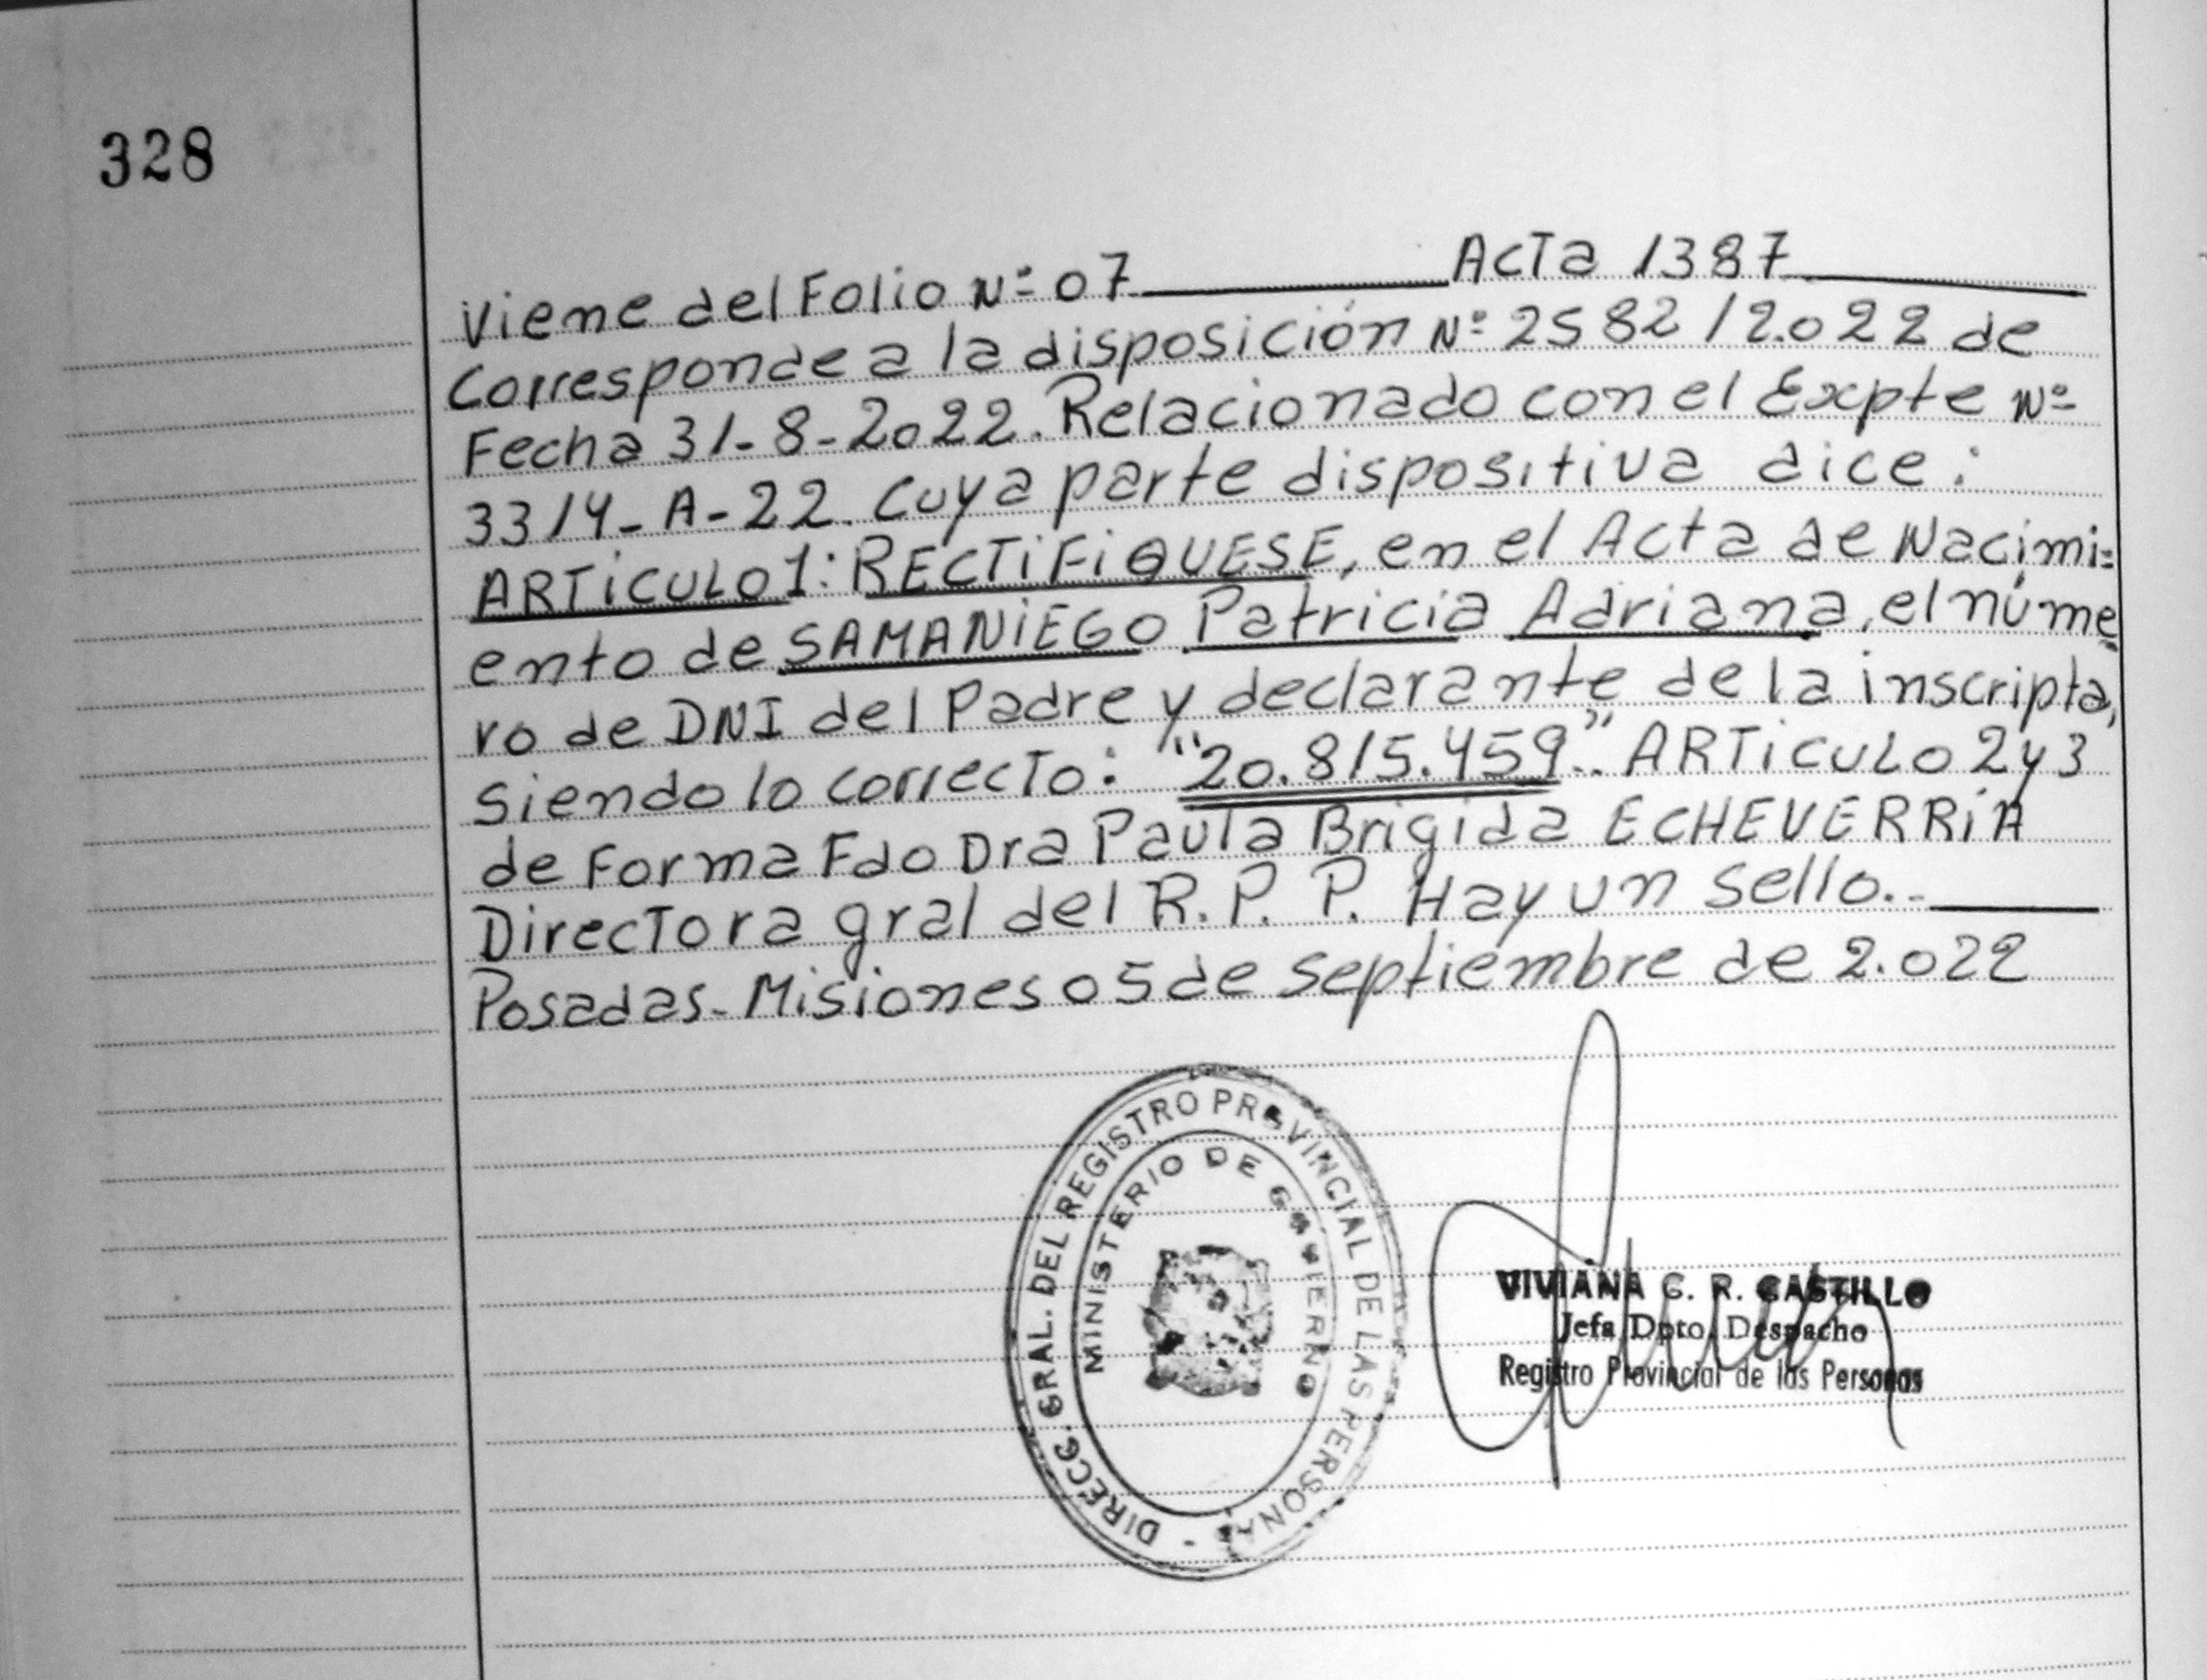 328
Viene del Folio Nº 07 Acta 1387
Corresponde a la disposición Nº 2582/2.022 de
Fecha 31-8-2022. Relacionado con el Expte Nº
3314-A-22. Cuya parte dispositiva dice:
ARTICULO 1: RECTIFIQUESE, en el Acta de Nacimi=
ento de SAMANIEGO Patricia Adriana, el núme
ro de DNI del Padre y declarante de la inscripta,
siendo lo correcto: "20.815.459". ARTICULO 2 y 3
de Forma Fdo Dra Paula Brigida ECHEVERRÍA
Directora gral del R.P.P. Hay un sello.-
Posadas-Misiones 05 de septiembre de 2.022
DIRECC. GRAL. DEL REGISTRO PROVINCIAL DE LAS PERSONAS -
MINISTERIO DE GOBIERNO
VIVIANA G. R. CASTILLO
Jefa Dpto. Despacho
Registro Provincial de las Personas